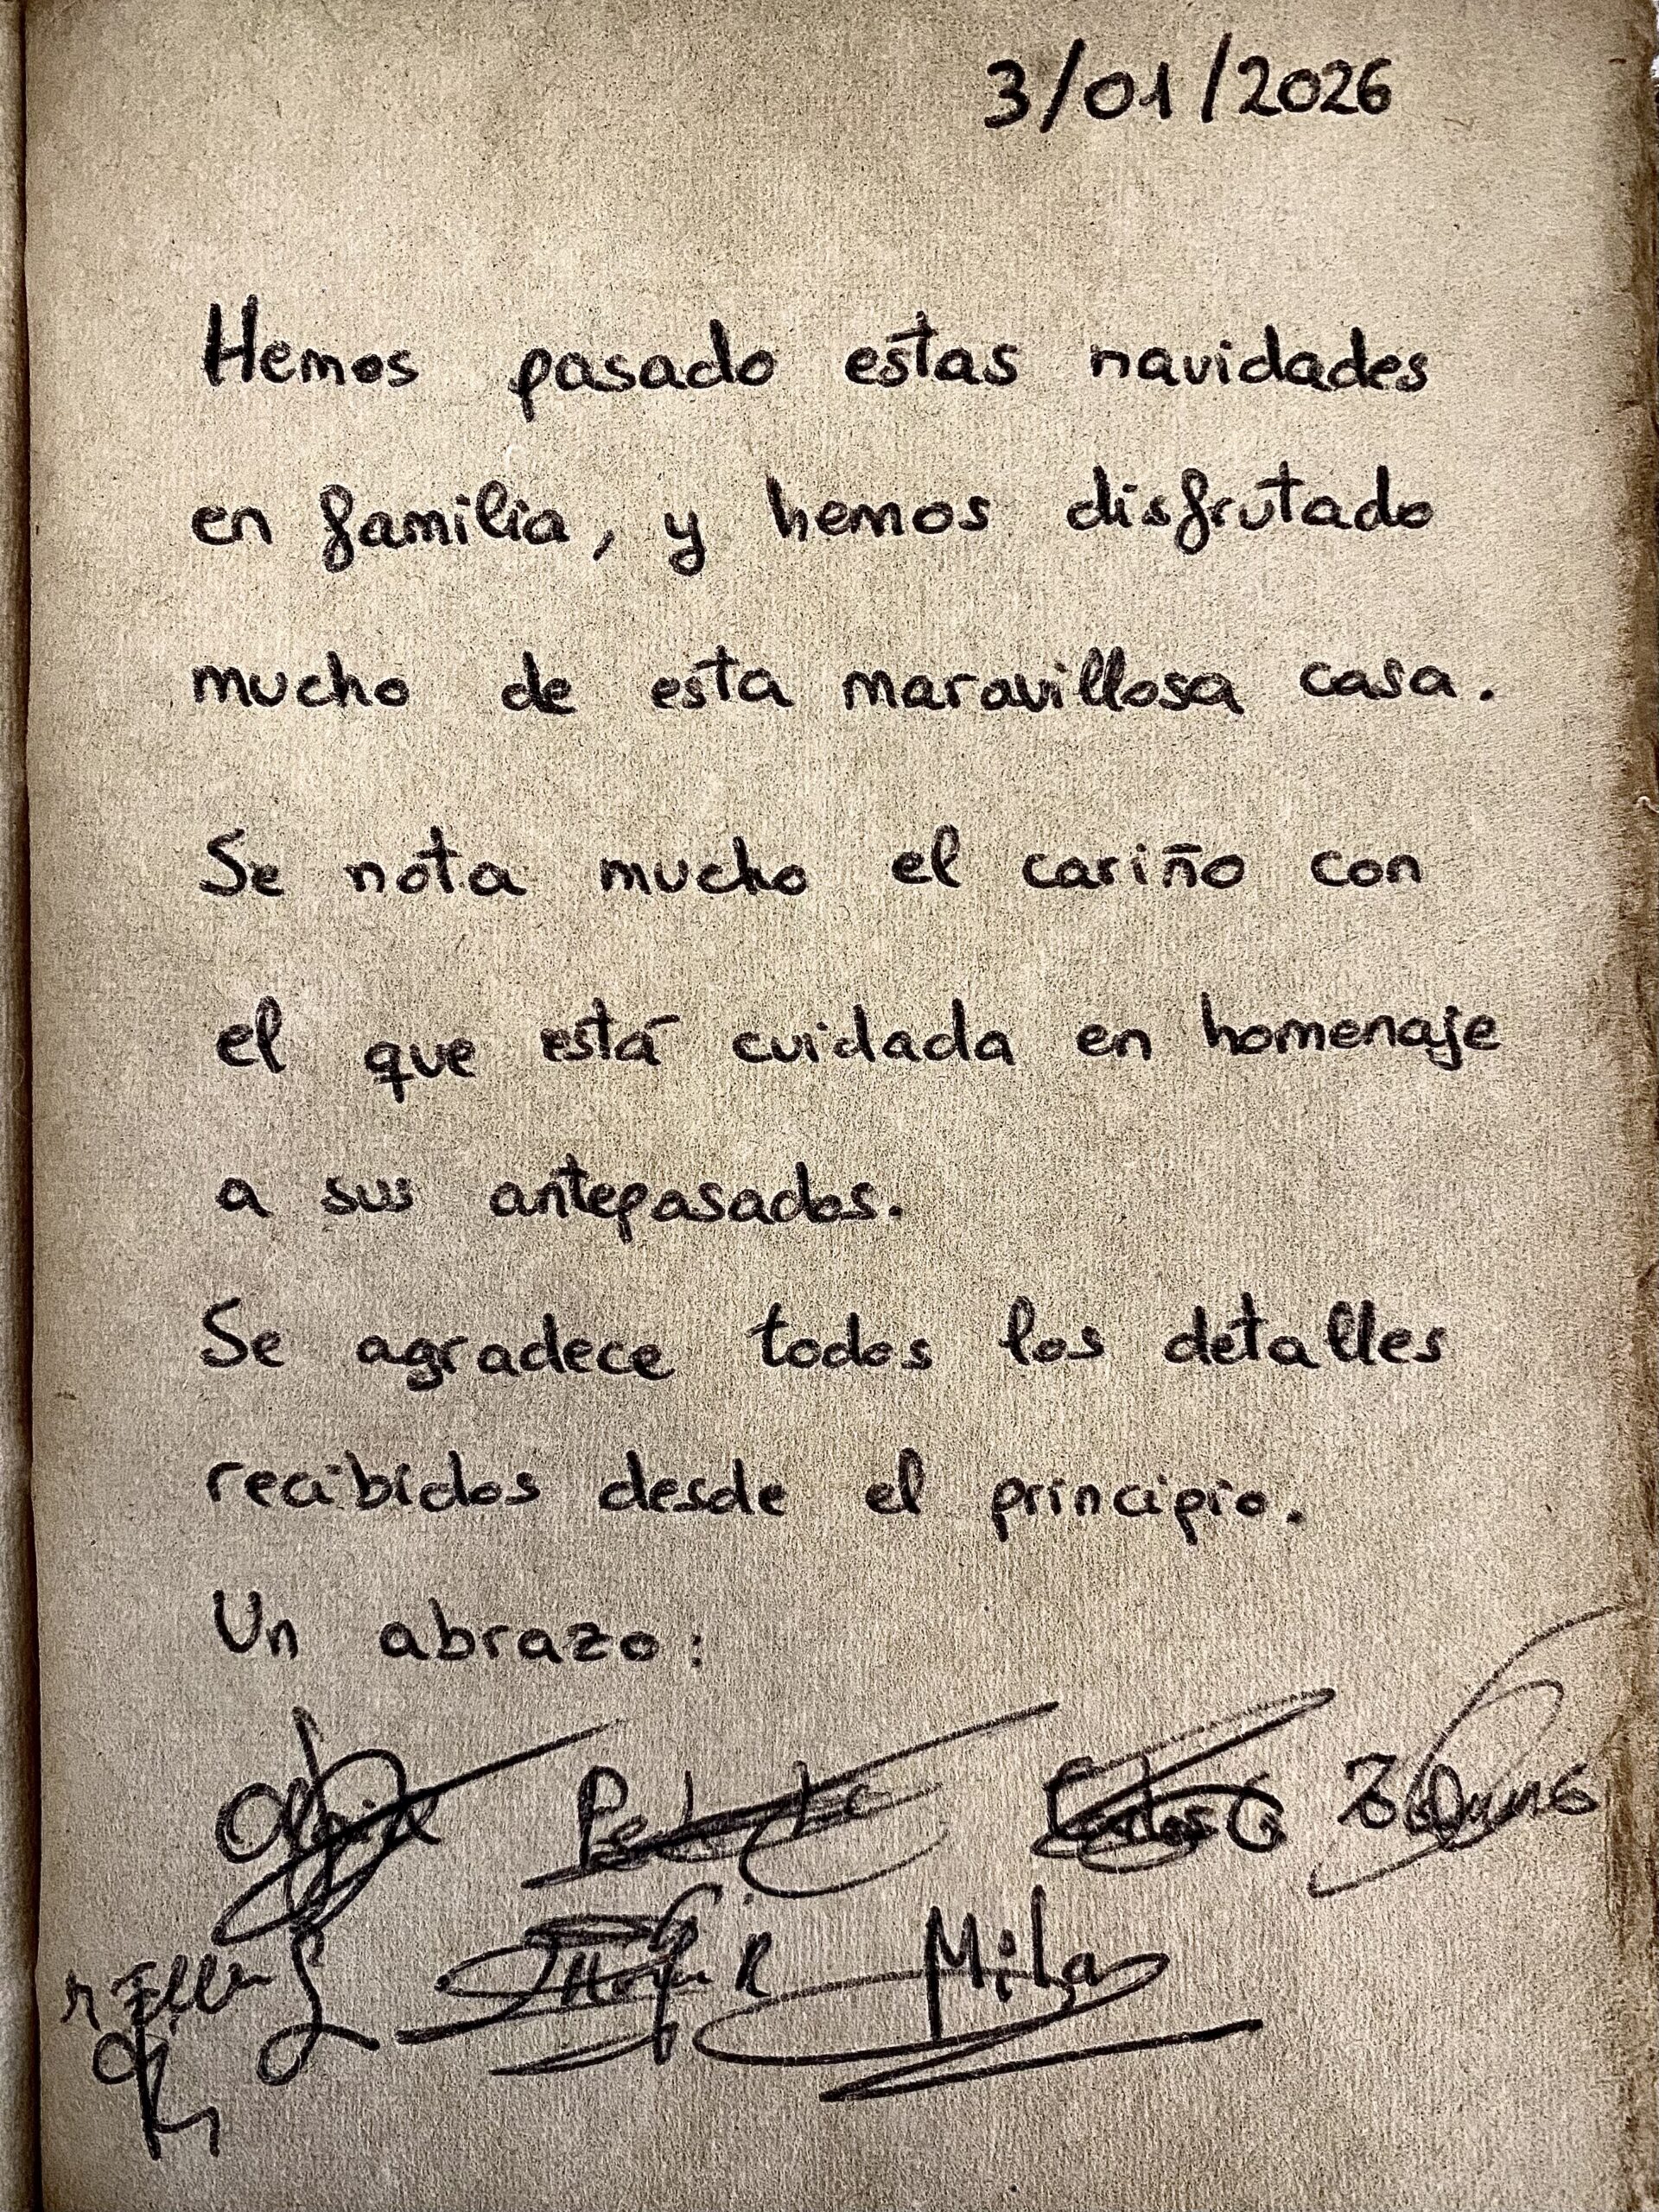 3/01/2026
Hemos pasado estas navidades
en familia, y hemos disfrutado
mucho de esta maravillosa casa.
Se nota mucho el cariño con
el que está cuidada en homenaje
a sus antepasados.
Se agradece todos los detalles
recibidos desde el principio.
Un abrazo: